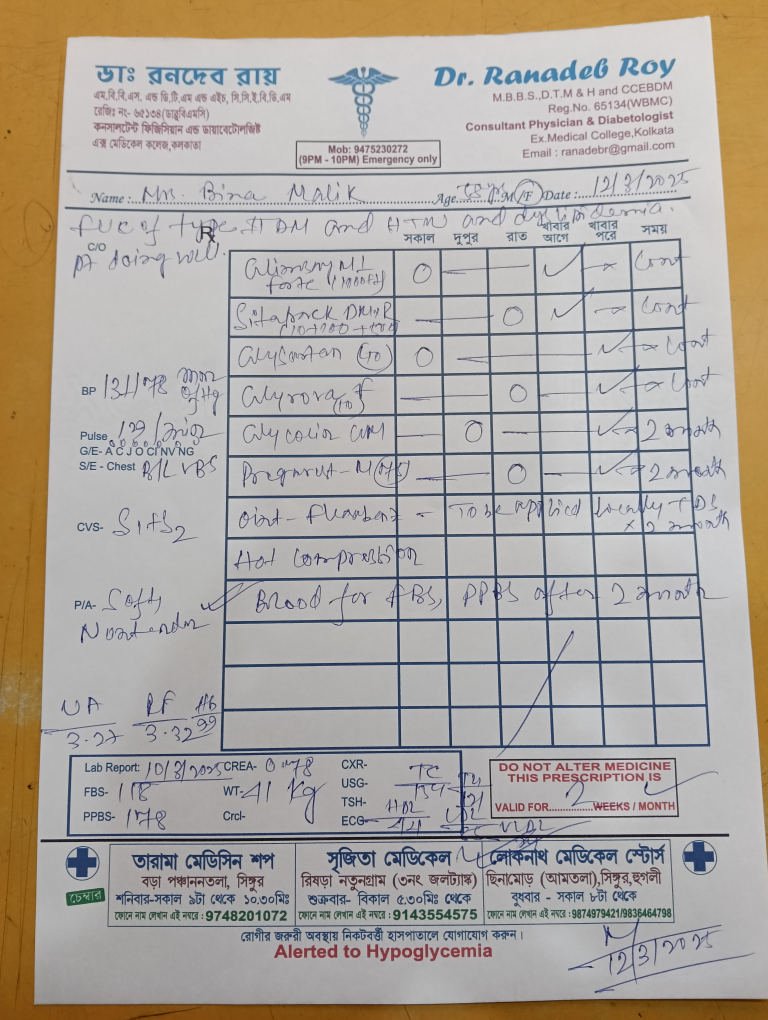 ডাঃ রনদেব রায়
এম.বি.বি.এস. এন্ড ডি.টি.এম এন্ড এইচ, সি.সি.ই.বি.ডি.এম
রেজিঃ নং- ৬৫১৩৪(ডাব্লুবিএমসি)
কনসালটেন্ট ফিজিসিয়ান এন্ড ডায়াবেটোলজিষ্ট
এক্স মেডিকেল কলেজ,কলকাতা
Mob: 9475230272
(9PM - 10PM) Emergency only
Dr. Ranadeb Roy
M.B.B.S.,D.T.M & H and CCEBDM
Reg.No. 65134(WBMC)
Consultant Physician & Diabetologist
Ex.Medical College,Kolkata
Email : ranadebr@gmail.com
Name: Mrs. Bina Malik Age M/F Date: 12/3/2025
FUC of type II DM and HTN and dyslipidemia.
C/O Rx সকাল দুপুর রাত খাবার আগে খাবার পরে সময়
pt doing well.
Glimison M1 forte (1000) O — ✓ — x Cont
Sitapack DM+R — O ✓ — x Cont
Glysartan (40) O — ✓ — x Cont
BP 131/78 mm of Hg
Glyrova F (10) — O — ✓ — x Cont
Pulse
G/E- A C J O CI NV NG
Glycolin GM — O — ✓ — x 2 month
S/E - Chest B/L VBS
Pregarut-M (75) — O — ✓ — x 2 month
CVS- S1+S2
Oint - — To be applied locally TDS x 2 month
Hot compression
P/A- Soft, Nontender
Blood for FBS, PPBS after 2 month
UA 3.27 RF 3.32 Hb 99
Lab Report: 10/3/2025 CREA- 0.78 CXR-
FBS- 118 WT- 41 kg USG- TC 154
TSH- HDL 44 TG 121
PPBS- 178 Crcl- ECG LDL VLDL
DO NOT ALTER MEDICINE
THIS PRESCRIPTION IS
VALID FOR 2 WEEKS / MONTH
চেম্বার
তারামা মেডিসিন শপ
বড়া পঞ্চাননতলা, সিঙ্গুর
শনিবার-সকাল ৯টা থেকে ১০.৩০মিঃ
ফোনে নাম লেখান এই নম্বরে : 9748201072
সৃজিতা মেডিকেল
রিষড়া নতুনগ্রাম (৩নং জলট্যাঙ্ক)
শুক্রবার- বিকাল ৫.৩০মিঃ থেকে
ফোনে নাম লেখান এই নম্বরে : 9143554575
লোকনাথ মেডিকেল স্টোর্স
ছিনামোড় (আমতলা),সিঙ্গুর,হুগলী
বুধবার - সকাল ৮টা থেকে
ফোনে নাম লেখান এই নম্বরে :9874979421/9836464798
রোগীর জরুরী অবস্থায় নিকটবর্তী হাসপাতালে যোগাযোগ করুন।
Alerted to Hypoglycemia
12/3/2025